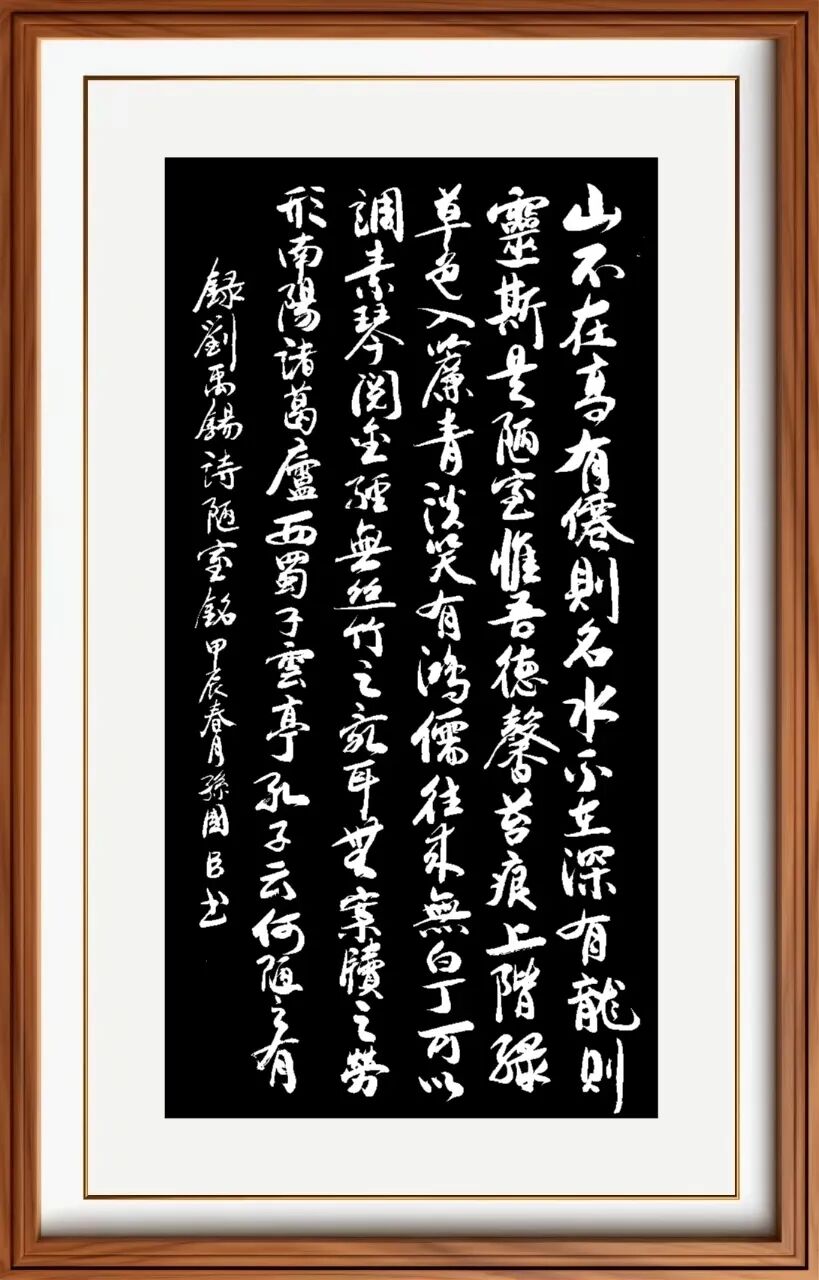 山不在高有僊則名水不在深有龍則
靈斯是陋室惟吾德馨苔痕上階綠
草色入簾青談笑有鴻儒往來無白丁可以
調素琴閱金經無丝竹之亂耳無案牘之勞
形南陽諸葛廬西蜀子雲亭孔子云何陋之有
録劉禹錫詩陋室銘甲辰春月孫國臣书